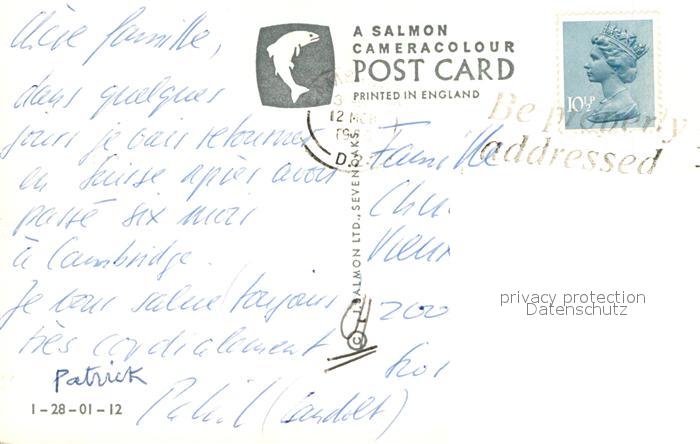 Chère famille,
dans quelques
jours je vais retourner
en Suisse après avoir
passé six mois
à Cambridge.
Je vous salue toujours
très cordialement
Patrick
1-28-01-12
A SALMON
CAMERACOLOUR
POST CARD
PRINTED IN ENGLAND
© J. SALMON LTD., SEVENOAKS
12
10½P
Be properly
addressed
Famille
privacy protection
Datenschutz